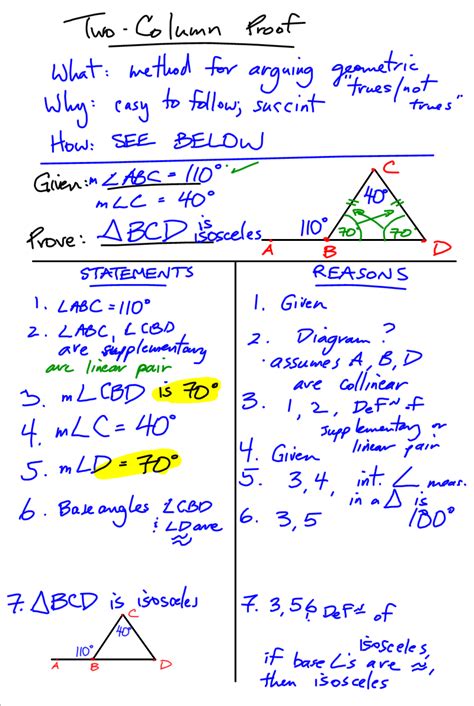 Two-Column Proof
What: method for arguing geometric
"trues/not
trues"
Why: easy to follow, succint
How: SEE BELOW
Given: m∠ABC = 110° ✓
m∠C = 40°
Prove: △BCD is
isosceles
C
40°
110°
70°
70°
A
B
D
STATEMENTS
1. ∠ABC = 110°
2. ∠ABC, ∠CBD
are supplementary
are linear pair
3. m∠CBD is 70°
4. m∠C = 40°
5. m∠D = 70°
6. Base angles ∠CBD
& ∠D are
≈
7. △BCD is isosceles
C
40°
110°
A
B
D
REASONS
1. Given
2. Diagram?
· assumes A, B, D
are collinear
3. 1, 2, DeFⁿ of
supplementary or
linear pair
4. Given
5. 3, 4, int. ∠ meas.
in a △ is
180°
6. 3, 5
7. 3, 5, 6 DeFⁿ of
isosceles,
if base ∠'s are ≈,
then isosceles